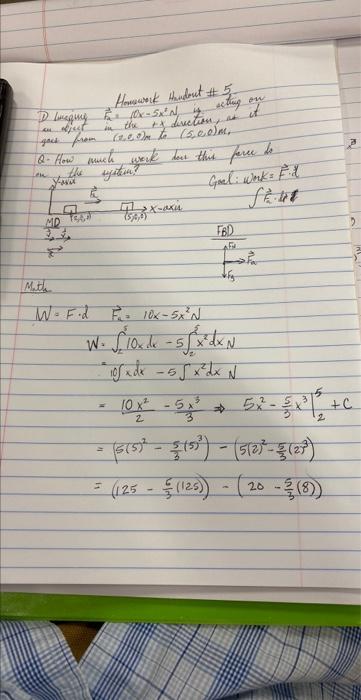 Homework Handout # 5
D Imagine F⃗a = 10x - 5x² N is acting on
an object in the +x direction, as it
goes from (2,0,0)m to (5,0,0)m,
Q - How much work does this force do
on the system?
Goal: work = F⃗·d
Y-axis
F⃗a
∫F⃗a·
(2,0,0)
(5,0,0)
X-axis
MD
FBD
FN
F⃗a
Fg
Math
W = F·d F⃗a = 10x - 5x² N
W = ∫₂⁵ 10x dx - 5∫₂⁵ x² dx N
= 10∫x dx - 5∫x² dx N
= 10x²/2 - 5x³/3 ⇒ 5x² - 5/3 x³ |₂⁵ + C
= (5(5)² - 5/3(5)³) - (5(2)² - 5/3(2)³)
= (125 - 5/3(125)) - (20 - 5/3(8))